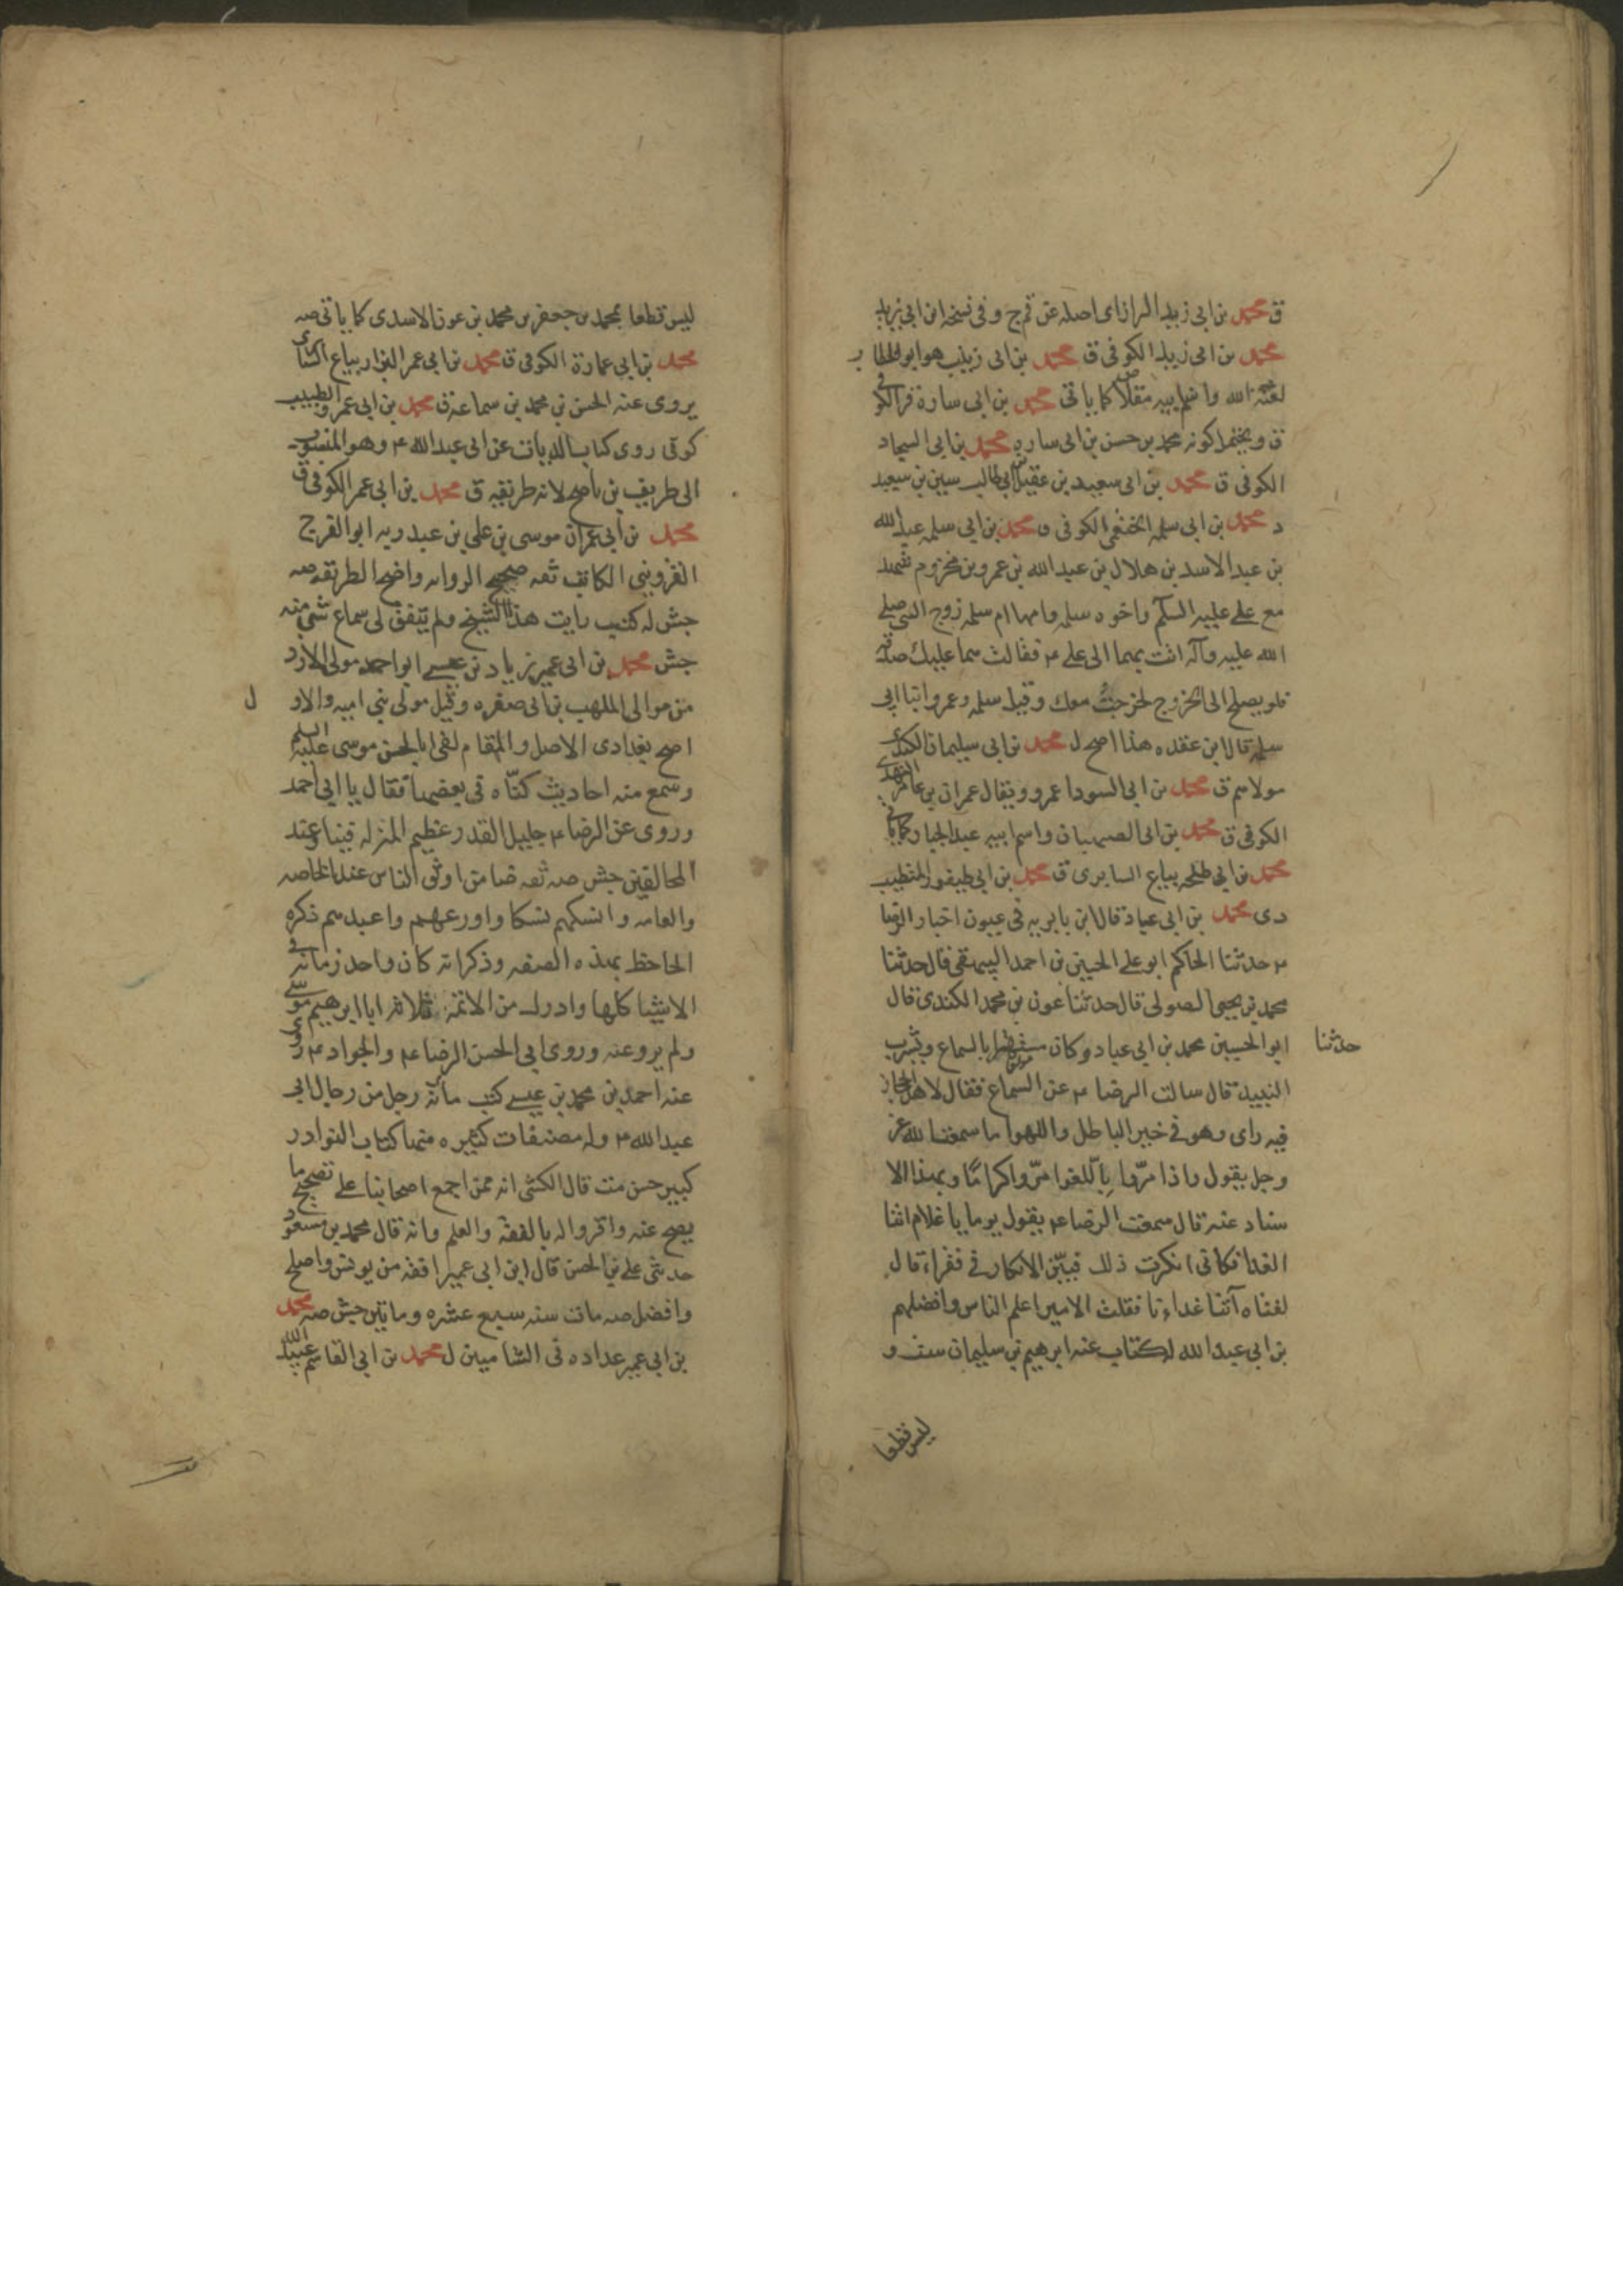 ق محمد بن ابى زيد الرازى اصله من قم ج وفى نسخة ابن ابى زيد
محمد بن ابى زيد الكوفى ق محمد بن ابى زينب هو ابو الخطاب
لعنه الله واسم ابيه مقلاص كما ياتى محمد بن ابى سارة الكوفى
ق ويحتمل كونه محمد بن حسن بن ابى ساره محمد بن ابى السجاد
الكوفى ق محمد بن ابى سعيد بن عقيل بن ابى طالب سين بن سعيد
د محمد بن ابى سلمه الخثعمى الكوفى ق محمد بن ابى سلمه عبد الله
بن عبد الاسد بن هلال بن عبد الله بن عمرو بن مخزوم شهد
مع على عليه السلم واخوه سلمه وامهما ام سلمه زوج النبى صلى
الله عليه وآله اتت بهما الى على ع فقالت هما عليك صدقه
فلو يصلح الى الخروج لخرجت معك وقيل سلمه وعمرو ابنا ابى
سلمه قال ابن عقده هذا اصح ل محمد بن ابى سليمان الكندى
مولاهم ق محمد بن ابى السودا عمرو ويقال عمران بن عامر النهدى
الكوفى ق محمد بن ابى الصهبان واسم ابيه عبد الجبار كما ياتى
محمد بن ابى طلحه بياع السابرى ق محمد بن ابى طيفور المتطبب
دى محمد بن ابى عباد قال ابن بابويه فى عيون اخبار الرضا
ع حدثنا الحاكم ابو على الحسين بن احمد البيهقى قال حدثنا
محمد بن يحيى الصولى قال حدثنا عون بن محمد الكندى قال
حدثنا ابو الحسين محمد بن ابى عباد وكان مشتهرا بالسماع وشرب
النبيذ قال سالت الرضا ع عن السماع فقال لاهل الحجاز
فيه راى وهو فى حيز الباطل واللهو اما سمعت الله عز
وجل يقول واذا مرّوا بالّلغوا مرّوا كراما وبهذا الا
سناد عنه قال سمعت الرضا ع يقول يوما يا غلام اتنا
الغدا فكانى انكرت ذلك فتبيّن الانكار فى فقراء قال
لفتاه آتنا غداءنا فقلت الامير اعلم الناس وافضلهم
بن ابى عبد الله له كتاب عنه ابرهيم بن سليمان ست و
ليس قطعا
ليس قطعا بمحمد بن جعفر بن محمد بن عون الاسدى كما ياتى صه
محمد بن ابى عمارة الكوفى ق محمد بن ابى عمر البزار بياع السابرى
يروى عنه الحسن بن محمد بن سماعة ق محمد بن ابى عمرو الطبيب
كوفى روى كتاب الديات عن ابى عبد الله ع وهو المنسوب
الى طريف بن ناصح لانه طريقه ق محمد بن ابى عمر الكوفى ق
محمد بن ابى عمران موسى بن على بن عبدويه ابو الفرج
القزوينى الكاتب ثقه صحيح الروايه واضح الطريقه صه
جش له كتب رايت هذا الشيخ ولم يتفق لى سماع شئ منه
جش محمد بن ابى عمير زياد بن عيسى ابو احمد مولى الازد
من موالى المهلب بن ابى صفره وقيل مولى بنى اميه والاول
اصح بغدادى الاصل والمقام لقى ابا الحسن موسى عليه السلم
وسمع منه احاديث كنّاه فى بعضها فقال يا ابى احمد
وروى عن الرضا ع جليل القدر عظيم المنزله فينا وعند
المخالفين جش صه ثقه ضا من اوثق الناس عند الخاصه
والعامه وانسكهم نسكا واورعهم واعبدهم ذكره
الجاحظ بهذه الصفه وذكر انه كان واحد زمانه فى
الاشيا كلها وادرك من الائمة ثلاثه ابا ابرهيم موسى
ولم يرو عنه وروى ابى الحسن الرضا ع والجواد ع روى
عنه احمد بن محمد بن عيسى كتب مائة رجل من رجال ابى
عبد الله ع وله مصنفات كثيره منها كتاب النوادر
كبير حسن ست قال الكشى انه ممن اجمع اصحابنا على تصحيح ما
يصح عنه واقروا له بالفقه والعلم وانه قال محمد بن مسعود
حدثنى على بن الحسن قال ابن ابى عمير افقه من يونس واصلح
وافضل صه مات سنه سبع عشره وماتين جش صه محمد
بن ابى عمير عداده فى الشاميين ل محمد بن ابى القاسم عبيد الله